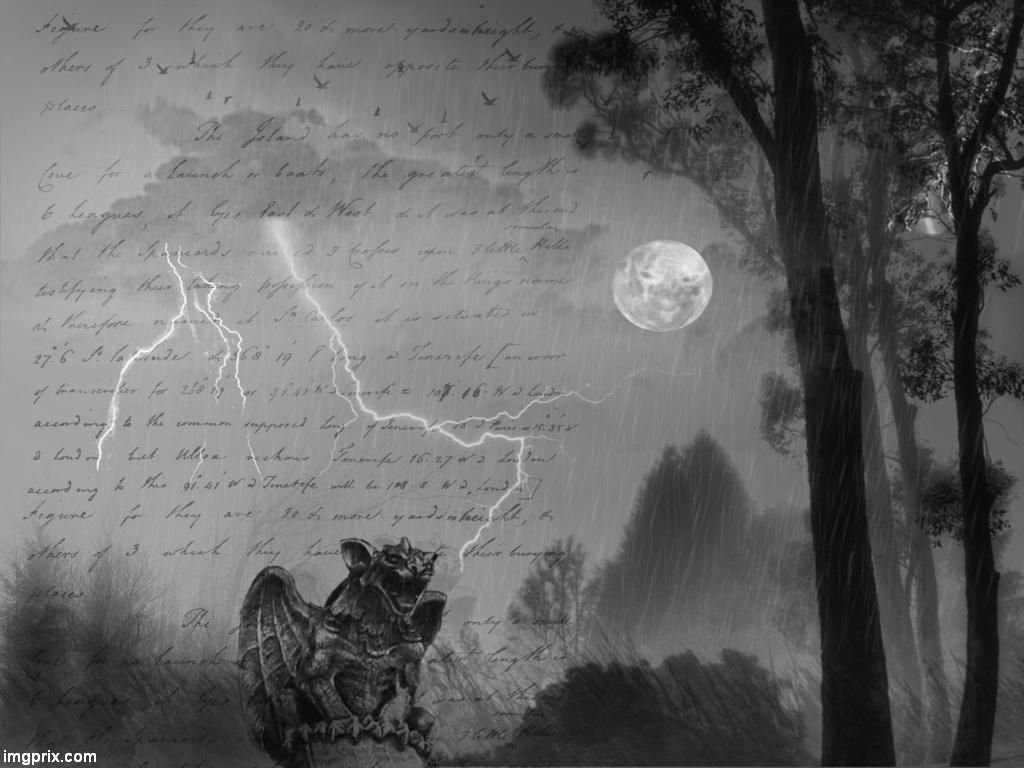 Figure for they are 20 & more yards in height, &
others of 3 which they have opposite their burying
places
The Island has no port only a small
Cove for a Launch or boats, the greatest length is
6 Leagues, it lyes East & West & it was at this end
somular
that the Spaniards 3 Crosses upon 3 little Hills
testifying their taking possession of it in the Kings name
& therefore it Sn Carlos it is situated in
27° 6 So latitude & 268° 19 Long. a Tenerife [an error
of transcriber for 268° 19 or 91° 41 W a Tenerife = 108 16 W a London
according to the common supposed Long of Tenerife 18 a Paris = 15.35 W
a London but Ulloa reckons Tenerife 16.27 W a London
according to this 91° 41 W a Tenerife will be 108.8 W a London]
Figure for they are 20 & more yards in height, &
others of 3 which they have their burying
places
The only a small
Cove for a Launch greatest length is
6 Leagues was at this end
somular
that the Spaniards 3 little Hills
imgprix.com